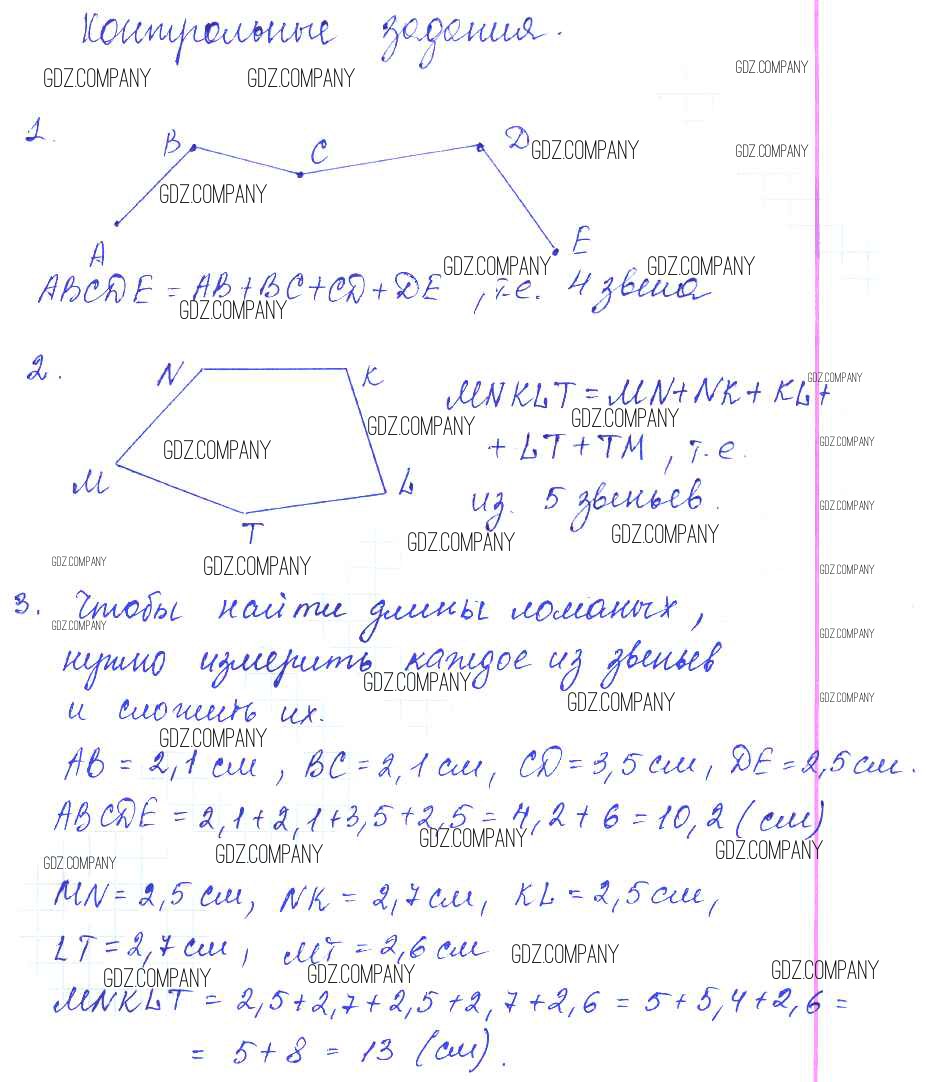 Контрольные задания.
GDZ.COMPANY GDZ.COMPANY GDZ.COMPANY
1.
B C D GDZ.COMPANY GDZ.COMPANY
GDZ.COMPANY
A E
GDZ.COMPANY GDZ.COMPANY
ABCDE = AB+BC+CD+DE, т.е. 4 звена
GDZ.COMPANY
2.
N K
GDZ.COMPANY
MNKLT = MN+NK+KL+
GDZ.COMPANY GDZ.COMPANY
GDZ.COMPANY GDZ.COMPANY
+ LT+TM, т.е.
M L
из 5 звеньев.
GDZ.COMPANY
T
GDZ.COMPANY GDZ.COMPANY
GDZ.COMPANY GDZ.COMPANY GDZ.COMPANY
3. Чтобы найти длины ломаных,
GDZ.COMPANY GDZ.COMPANY
нужно измерить каждое из звеньев
GDZ.COMPANY GDZ.COMPANY GDZ.COMPANY
и сложить их.
GDZ.COMPANY
AB = 2,1 см, BC = 2,1 см, CD = 3,5 см, DE = 2,5 см.
ABCDE = 2,1+2,1+3,5+2,5 = 4,2+6 = 10,2 (см)
GDZ.COMPANY GDZ.COMPANY GDZ.COMPANY
GDZ.COMPANY
MN = 2,5 см, NK = 2,7 см, KL = 2,5 см,
LT = 2,7 см, MT = 2,6 см
GDZ.COMPANY
GDZ.COMPANY GDZ.COMPANY GDZ.COMPANY
MNKLT = 2,5+2,7+2,5+2,7+2,6 = 5+5,4+2,6 =
= 5+8 = 13 (см).